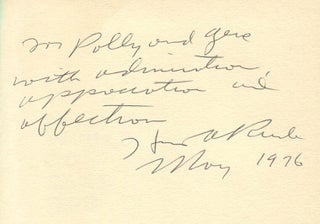 for Polly and Gene
with admiration,
appreciation and
affection
May 1976